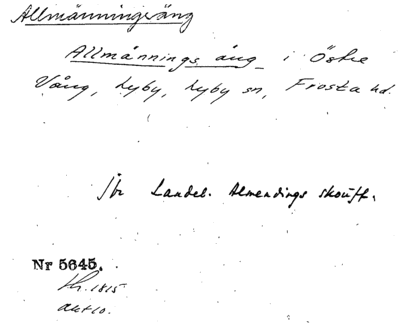 Allmänningsäng
Allmännings äng i Östre
Vång, Lyby, Lyby sn, Frosta hd.
Jfr Landeb. Almendings skouff.
Nr 5645.
1815
akt 10.